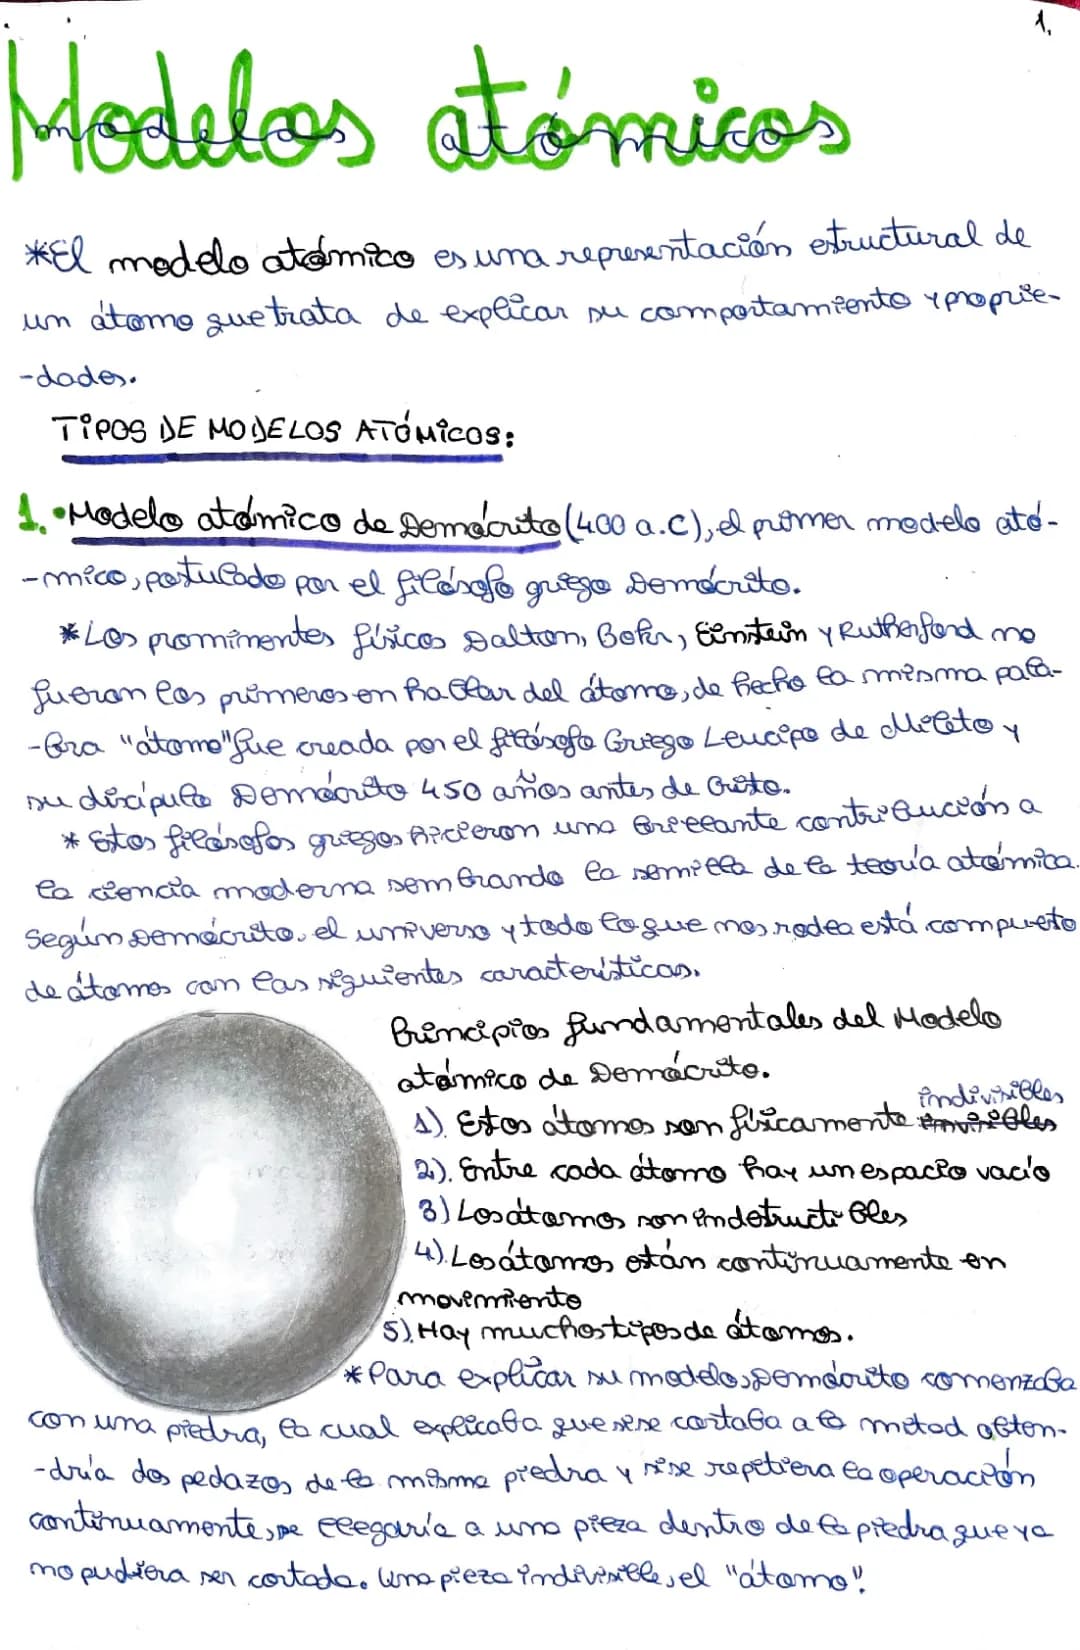 1.
Modelos atómicos
*El modelo atómico es una representación estructural de
un átomo que trata de explicar su comportamiento y propie-
-dades.
TIPOS DE MODELOS ATÓMICOS:
1. •Modelo atómico de Demócrito (400 a.C), el primer modelo ató-
-mico, postulado por el filósofo griego Demócrito.
*Los prominentes físicos Dalton, Bohr, Einstein y Rutherford no
fueron los primeros en hablar del átomo, de hecho la misma pala-
-bra "átomo" fue creada por el filósofo Griego Leucipo de Mileto y
su discípulo Demócrito 450 años antes de Cristo.
* Estos filósofos griegos hicieron una brillante contribución a
la ciencia moderna sembrando la semilla de la teoría atómica.
Según Demócrito, el universo y todo lo que nos rodea está compuesto
de átomos con las siguientes características.
Principios fundamentales del Modelo
atómico de Demócrito.
indivisibles
1). Estos átomos son físicamente invisibles
2). Entre cada átomo hay un espacio vacío
3) Los átomos son indestructibles
4). Los átomos están continuamente en
movimiento
5). Hay muchos tipos de átomos.
*Para explicar su modelo, Demócrito comenzaba
con una piedra, la cual explicaba que si se cortaba a la mitad obten-
-dría dos pedazos de la misma piedra y si se repetiera la operación
continuamente, se llegaría a una pieza dentro de la piedra que ya
no pudiera ser cortada. Una pieza indivisible, el "átomo".